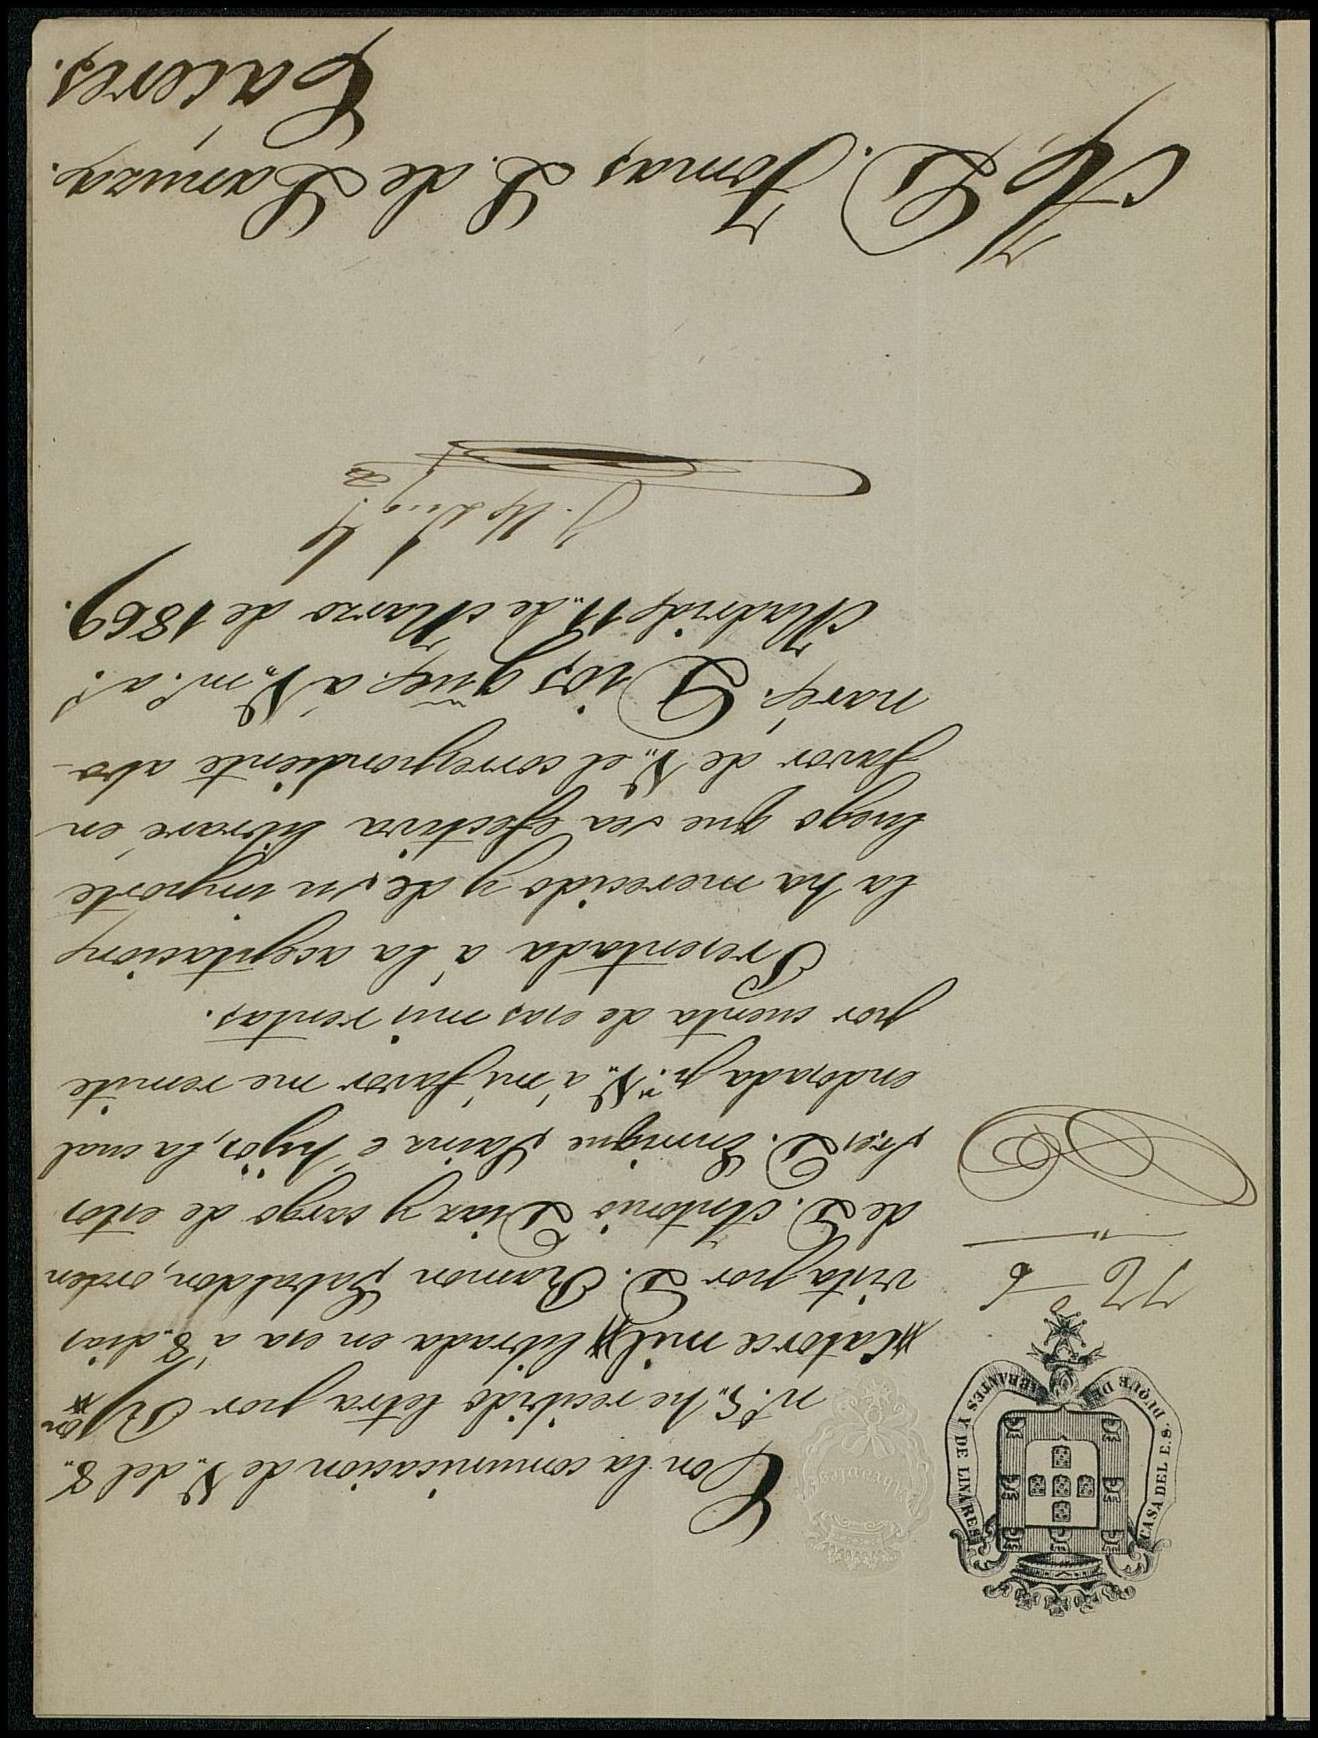 CASA DEL E.S. DUQUE DE ABRANTES Y DE LINARES
Con la comunicacion de V. del 8.,
n.º 5., he recibido letra por Rs. von
"Catorce mil" librada en esa á 8., dias
vista por D. Ramon Sabaldon, orden
de D. Antonio Diaz y cargo de estos
Sres D. Enrique Saina é hijos, la cual
endosada pr. V. á mi favor me remite
por cuenta de esas mis rentas.
Presentada á la aceptacion
la ha merecido y de su importe
luego que sea efectiva libraré en
favor de V. el correspondiente abo-
naré. Dios gue. á V. ms. as.
Madrid 11., de Marzo de 1869.
Sr. D. Tomas L. de Lanuza.
Cáceres.